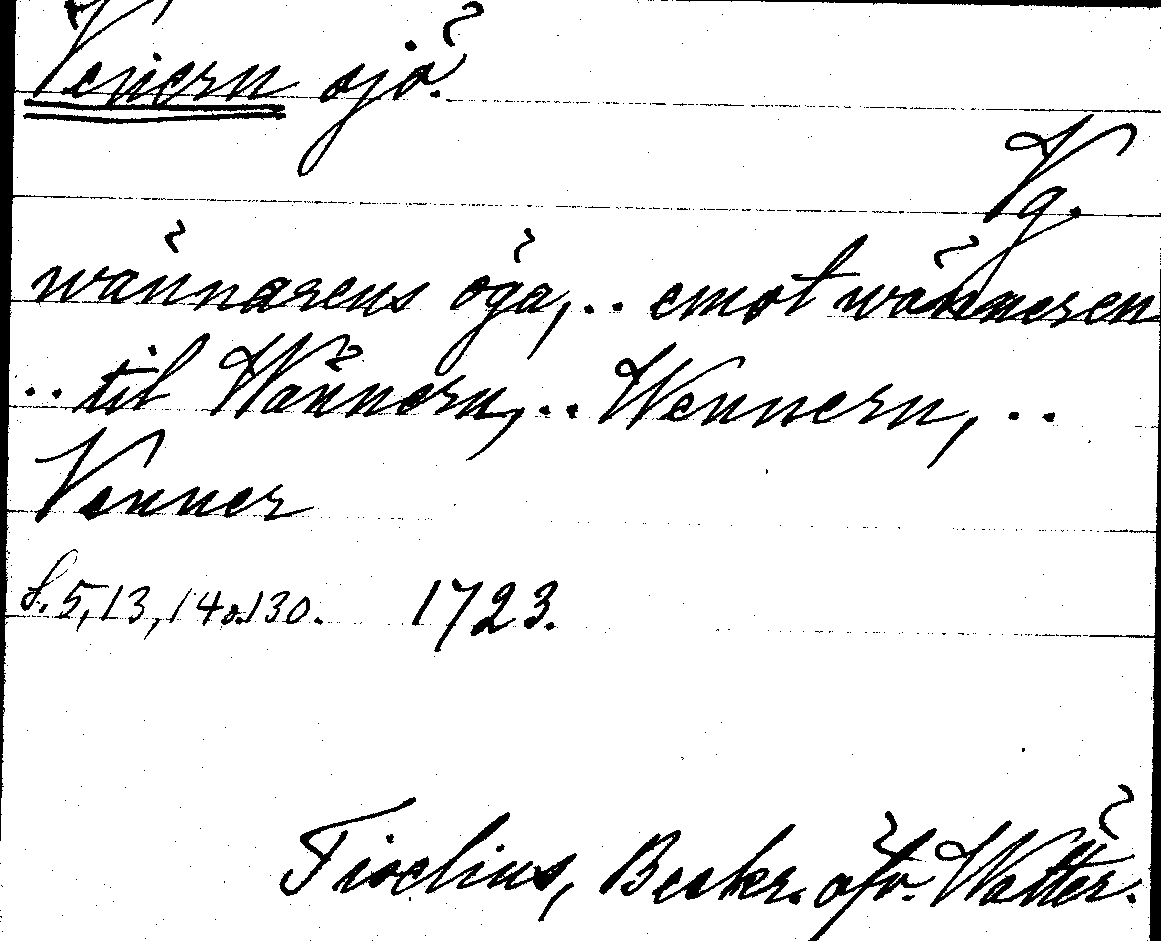 Venern sjö.
Vg.
wännarens öga, .. emot wänneren
.. til Wännern, .. Wennern, ..
Venner
S. 5, 13, 14 o. 130. 1723.
Tiselius, Beskr. öfv. Wätter.